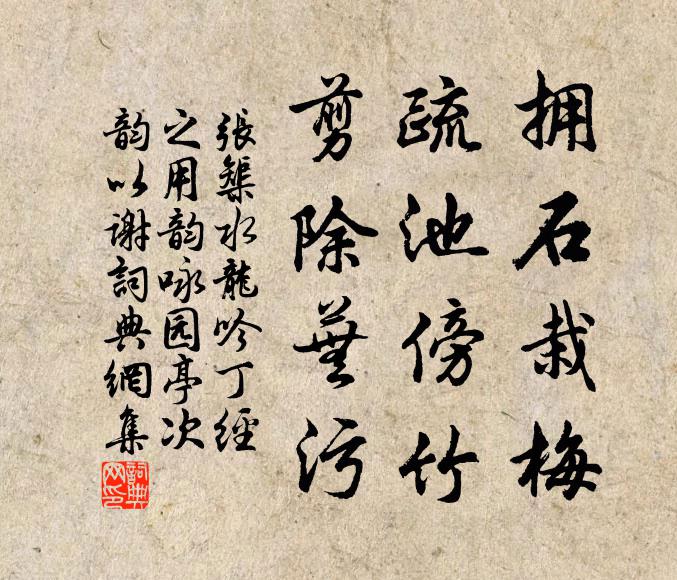 拥石栽梅
疏池傍竹
剪除蕪污
張榘水龍吟丁經
之用韵咏园亭次
韵以谢詞典網集
詞典網印